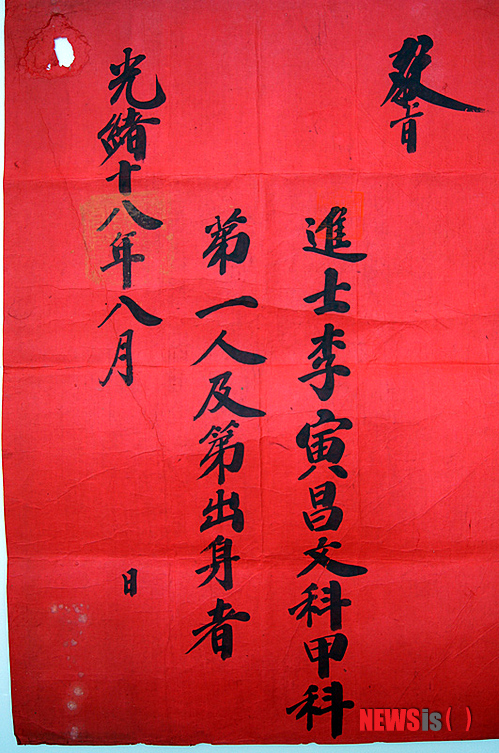 敎旨
進士李寅昌文科甲科
第一人及第出身者
光緖十八年八月 日
NEWSis( )